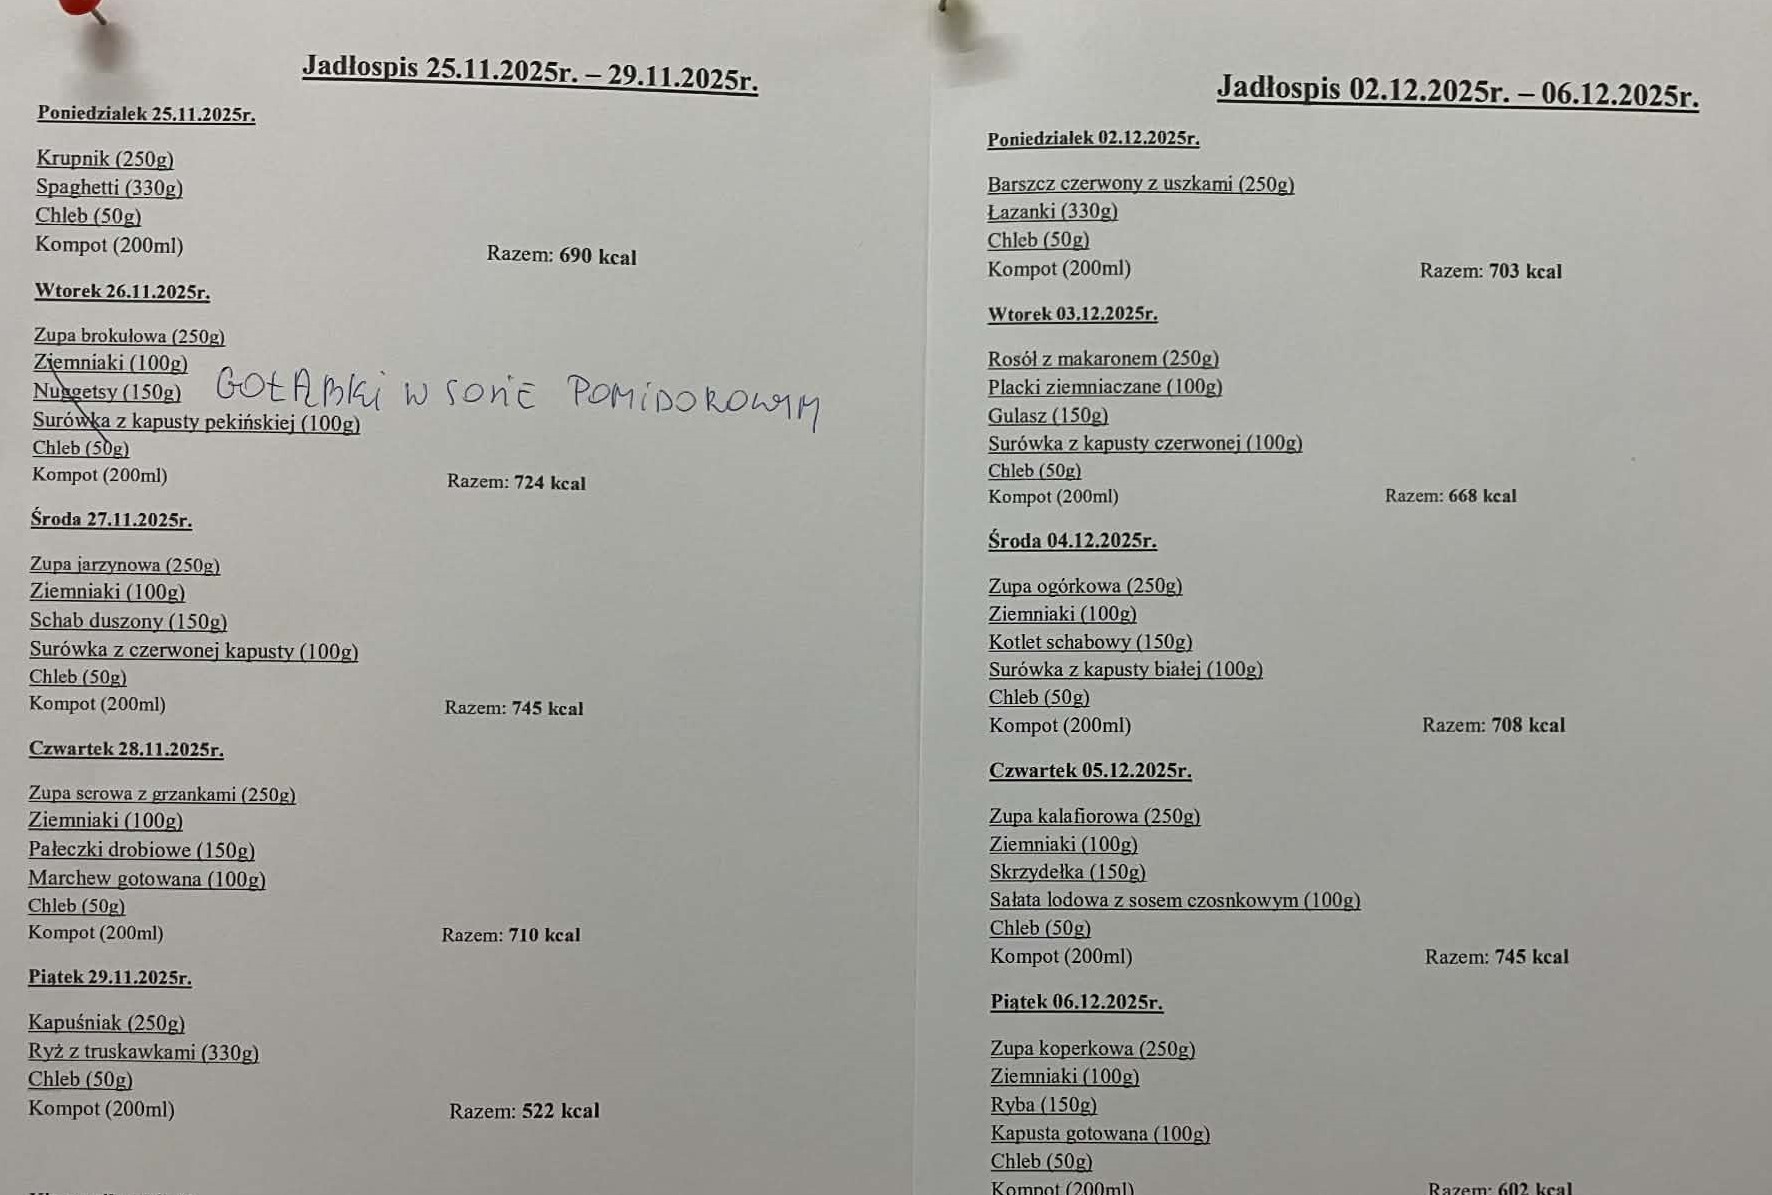 Jadłospis 25.11.2025r. – 29.11.2025r.
Poniedziałek 25.11.2025r.
Krupnik (250g)
Spaghetti (330g)
Chleb (50g)
Kompot (200ml) Razem: 690 kcal
Wtorek 26.11.2025r.
Zupa brokułowa (250g)
Ziemniaki (100g)
Nuggetsy (150g) GOŁĄBKI W SOSIE POMIDOROWYM
Surówka z kapusty pekińskiej (100g)
Chleb (50g)
Kompot (200ml) Razem: 724 kcal
Środa 27.11.2025r.
Zupa jarzynowa (250g)
Ziemniaki (100g)
Schab duszony (150g)
Surówka z czerwonej kapusty (100g)
Chleb (50g)
Kompot (200ml) Razem: 745 kcal
Czwartek 28.11.2025r.
Zupa serowa z grzankami (250g)
Ziemniaki (100g)
Pałeczki drobiowe (150g)
Marchew gotowana (100g)
Chleb (50g)
Kompot (200ml) Razem: 710 kcal
Piątek 29.11.2025r.
Kapuśniak (250g)
Ryż z truskawkami (330g)
Chleb (50g)
Kompot (200ml) Razem: 522 kcal
Jadłospis 02.12.2025r. – 06.12.2025r.
Poniedziałek 02.12.2025r.
Barszcz czerwony z uszkami (250g)
Łazanki (330g)
Chleb (50g)
Kompot (200ml) Razem: 703 kcal
Wtorek 03.12.2025r.
Rosół z makaronem (250g)
Placki ziemniaczane (100g)
Gulasz (150g)
Surówka z kapusty czerwonej (100g)
Chleb (50g)
Kompot (200ml) Razem: 668 kcal
Środa 04.12.2025r.
Zupa ogórkowa (250g)
Ziemniaki (100g)
Kotlet schabowy (150g)
Surówka z kapusty białej (100g)
Chleb (50g)
Kompot (200ml) Razem: 708 kcal
Czwartek 05.12.2025r.
Zupa kalafiorowa (250g)
Ziemniaki (100g)
Skrzydełka (150g)
Sałata lodowa z sosem czosnkowym (100g)
Chleb (50g)
Kompot (200ml) Razem: 745 kcal
Piątek 06.12.2025r.
Zupa koperkowa (250g)
Ziemniaki (100g)
Ryba (150g)
Kapusta gotowana (100g)
Chleb (50g)
Kompot (200ml) Razem: 602 kcal